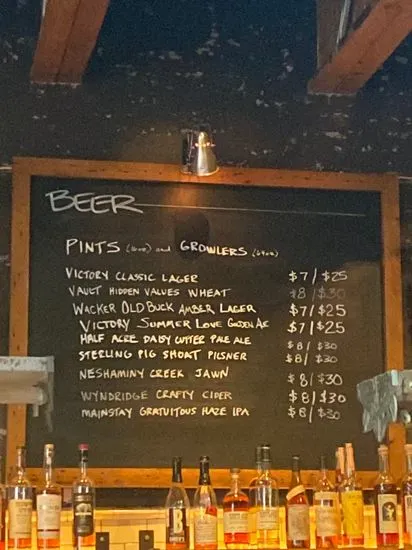 BEER
PINTS (16oz) and GROWLERS (64oz)
VICTORY CLASSIC LAGER $7/$25
VAULT HIDDEN VALUES WHEAT $8/$30
WACKER OLD BUCK AMBER LAGER $7/$25
VICTORY SUMMER LOVE GOLDEN ALE $7/$25
HALF ACRE DAISY CUTTER PALE ALE $8/$30
STERLING PIG SHOAT PILSNER $8/$30
NESHAMINY CREEK JAWN $8/$30
WYNDRIDGE CRAFTY CIDER $8/$30
MAINSTAY GRATUITOUS HAZE IPA $8/$30